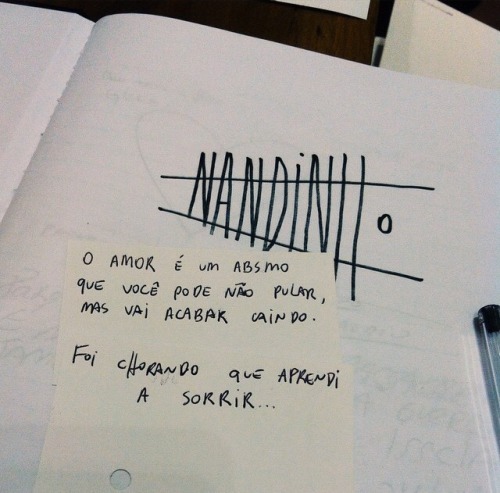 NANDINHO
O AMOR É UM ABSMO
QUE VOCÊ PODE NÃO PULAR,
MAS VAI ACABAR CAINDO.
FOI CHORANDO QUE APRENDI
A SORRIR...